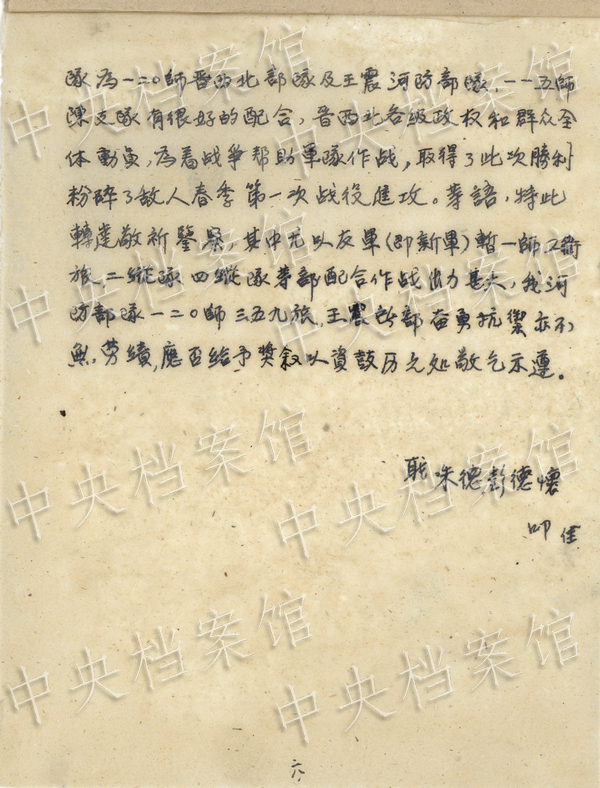 隊為一二〇師晋西北部隊及王震河防部隊,一一五師
陳支隊有很好的配合,晋西北各級政权和群众全
体動員,為着战争帮助軍隊作战,取得了此次勝利
粉碎了敌人春季第一次战役進攻。等語,特此
轉達敬祈鑒、其中尤以友軍(即新軍)暫一師工衛
旅,二縱隊四縱隊等部配合作战出力甚大,我河
防部隊一二〇師三五九旅,王震所部奋勇抗禦亦不
無劳績,應否給予奬叙以資鼓历之处敬乞示遵。
職朱德,彭德懷
叩佳
六
中央档案馆
中央档案馆
中央档案馆
中央档案馆
中央档案馆
中央档案馆
中央档案馆
中央档案馆